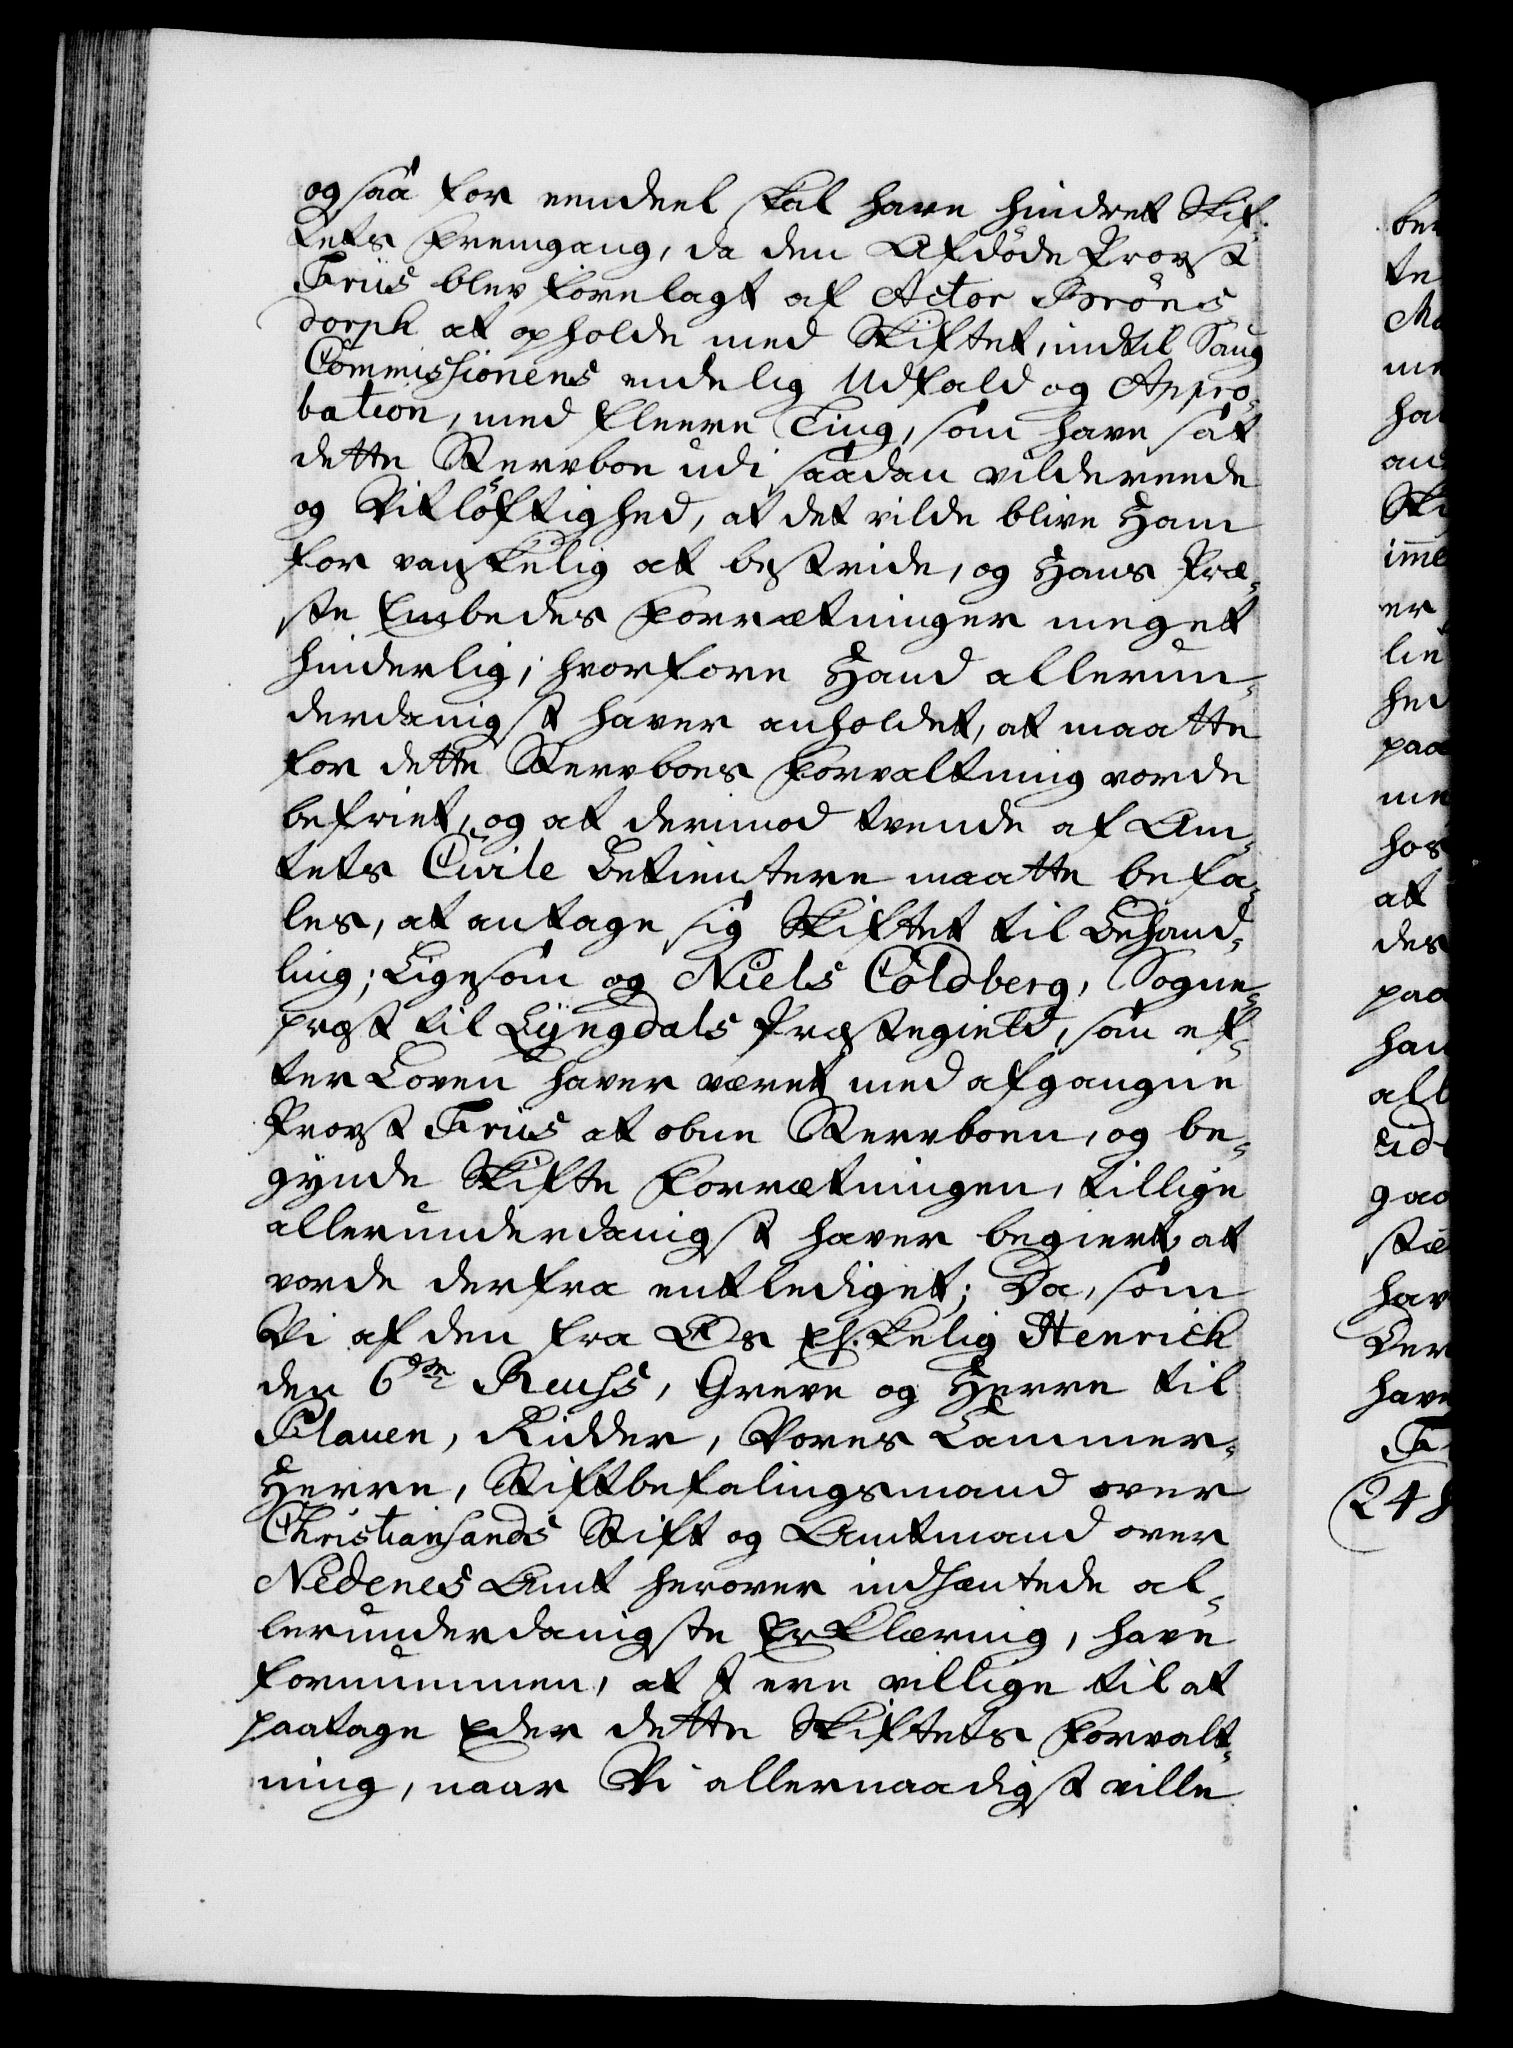 ogsaa for eendeel skal have hindret Skif-
tets Fremgang, da den Afdøde Provst
Friis blev forelagt af Actor Bröns-
dorph at opholde med Skiftet, indtil Saug
Commissionens endelig Udfald og Appro-
bation, med fleere Ting, som have sat
dette Stervboe udi saadan vildereede
og Vitløftighed, at det vilde blive Ham
for vanskelig at bestride, og Hans Præ-
ste Embedes Forrætninger meget
hinderlig; hvorfore Hand allerun-
derdanigst haver anholdet, at maatte
for dette Stervboes Forvaltning vorde
befriet, og at derimod tvende af Am-
tets Civile Betientere maatte befa-
les, at antage sig Skiftet til Behand-
ling; Ligesom og Niels Coldberg, Sogne-
præst til Lyngdals Præstegield, som ef-
ter Loven haver været med afgangne
Provst Friis at obne Stervboen, og be-
gynde Skifte Forrætningen, tillige
allerunderdanigst haver begiert at
vorde derfra entlediget; Da, som
Vi af den fra Os Elskelig Henrich
den 6te Reuss, Greve og Herre til
Plauen, Ridder, Vores Cammer-
Herre, Stiftbefalingsmand over
Christiansands Stift og Amtmand over
Nedenes Amt herover indhæntede al-
lerunderdanigste Erklæring, have
fornummen, at I ere villige til at
paatage Eder dette Skiftets Forvalt-
ning, naar Vi allernaadigst ville